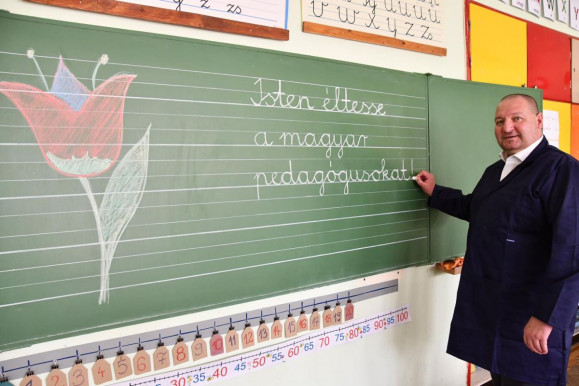 y z zs
v w x y z zs
Isten éltesse
a magyar
pedagógusokat!
1 2 3 4 5 6 7 8 9 10 11 12 13 14 15 16 17 18 19
30 35 40 45 50 55 60 65 70 75 80 85 90 95 100